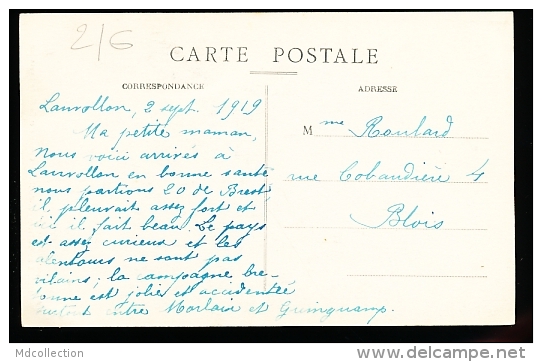 2/6
CARTE POSTALE
CORRESPONDANCE
ADRESSE
Lanvollon, 2 sept. 1919
Ma petite maman,
Nous voici arrivés à
Lanvollon en bonne santé
nous partions de Brest
il pleuvait assez fort et
ici il fait beau. Le pays
est assez curieux et les
alentours ne sont pas
vilains; la campagne bre-
tonne est jolie et accidentée
surtout entre Morlaix et Guingamp.
Mme Roulard
rue Cobaudière 4
Blois
Mdcollection
www.delcampe.net